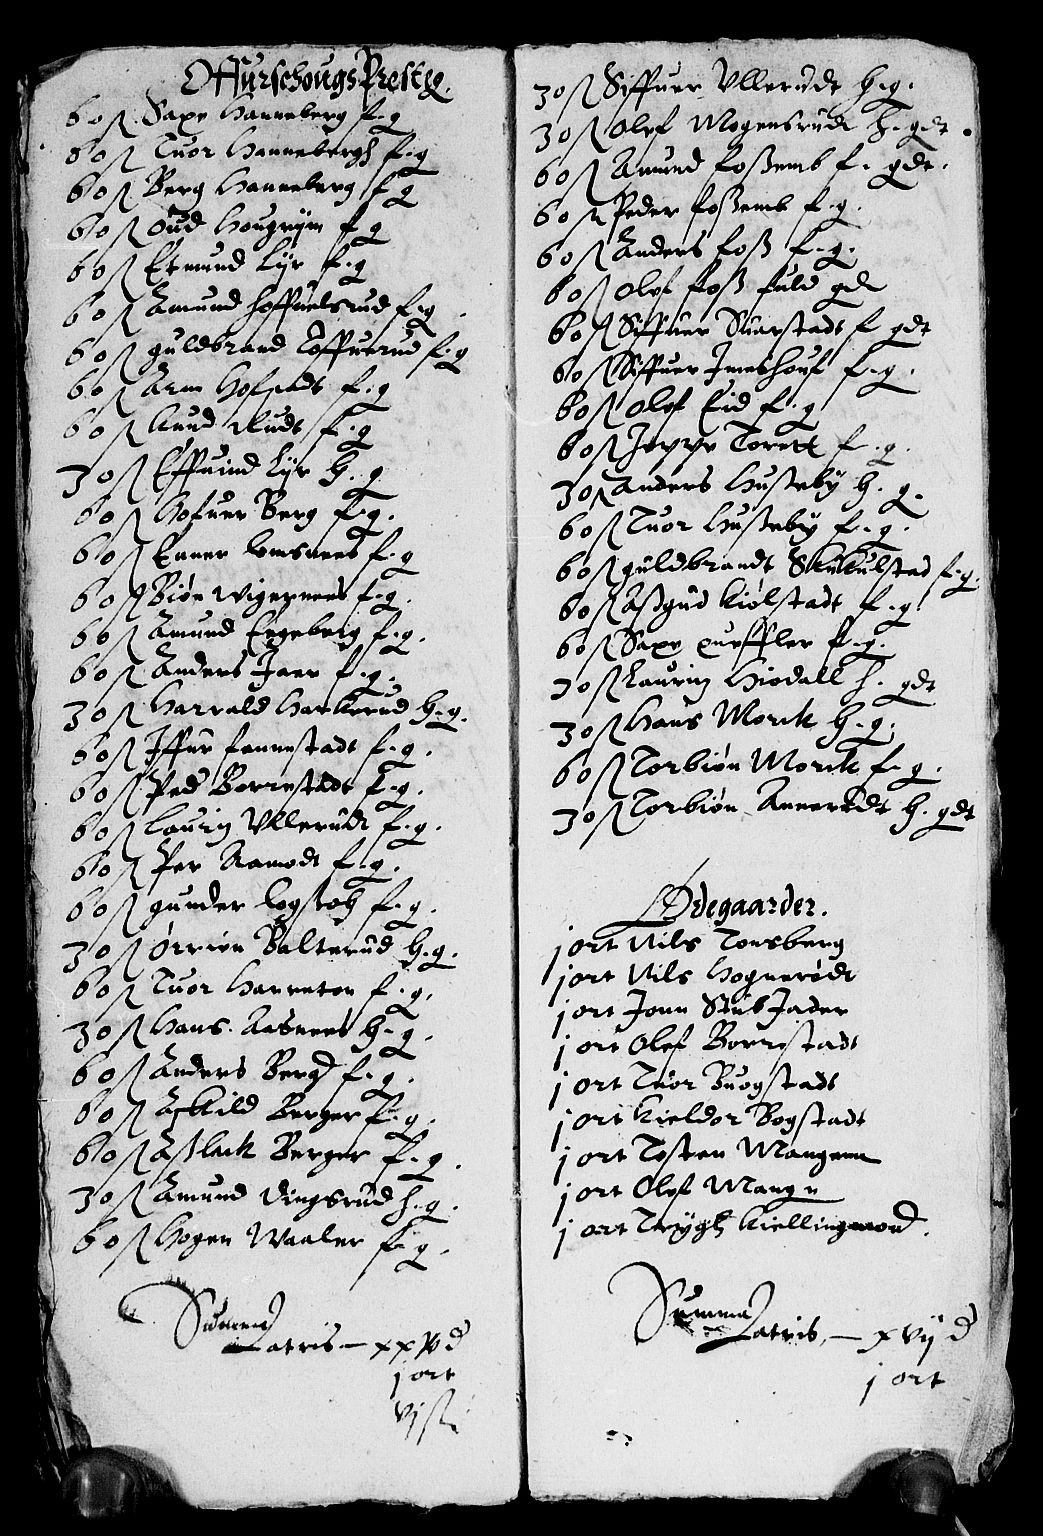 Offurschougs Prestg.
60 ß Saxe Hanneberg f. g
60 ß Tuor Hannebergh f. g
60 ß Berg Hanneberg f g
60 ß Oud Hougrÿm f g
60 ß Etmund Lÿr f. g
60 ß Amund hoffuelsrud f. g
60 ß guldbrand Toffuerud f. g
60 ß Arn Hofstadt f. g
60 ß Aund Rudt f. g
30 ß Effuind Lÿr H. g
60 ß Hofuer Berg f. g.
60 ß Enner Lomsnees f. g
60 ß Biøn Wigernees f. g.
60 ß Amund Engeberg f. g.
60 ß Anders Jaer f. g.
30 ß Harrald Harkerud H. g.
60 ß Iffur fannestadt f. g.
60 ß Ped Borrestadt f. g.
60 ß Lauriz Ullerudt f. g.
60 ß Per Ramodt f. g.
60 ß gunder Logstøh f. g.
30 ß Ørrien Balterud H. g.
60 ß Tuor Hanneton f. g.
30 ß Hans Aasnees H. g.
60 ß Anders Berg f. g.
60 ß Askild Berger f. g.
60 ß Aslack Berger f. g.
30 ß Amund Dingsrud h. g.
60 ß Hogen Waaler f. g.
Summa
Latris — xxv d
j ort
vj ß
30 ß Siffuer Ullerudt H. g.
30 ß Olef Mogensrudt H. gdt.
60 ß Amund foßemb f. gdt.
60 ß Peder foßemb f. g.
60 ß Anders foß f. g.
60 ß Olef foß fuld gd
60 ß Siffuer Skarstadt f gdt
60 ß Siffuer Jmeshouf f. g.
60 ß Olef Eid f. g
60 ß Jeppe Torett f. g.
30 ß Anders Hußebÿ H. g.
60 ß Tuor Hußebÿ f. g.
60 ß guldbrandt Skukulstad f. g.
60 ß Aßgud Kiølstadt f. g.
60 ß Saxe f. g.
30 ß Lauriz Hiodall h. gdt
30 ß Hans Morck H. g.
60 ß Torbiøn Morck f. g.
30 ß Torbiøn Annerudt H. gdt
Ødegaarder.
j ort Nils Tonsberg
j ort Nils Hognerødt
j ort Jonn Stubjader
j ort Olef Borrestadt
j ort Tuor Buogstadt
j ort Kieldor Bogstadt
j ort Tosten Mangenn
j ort Olef Mangn
j ort Trÿgh Kiellingmord.
Summa
Latris, — xvij d
j ort